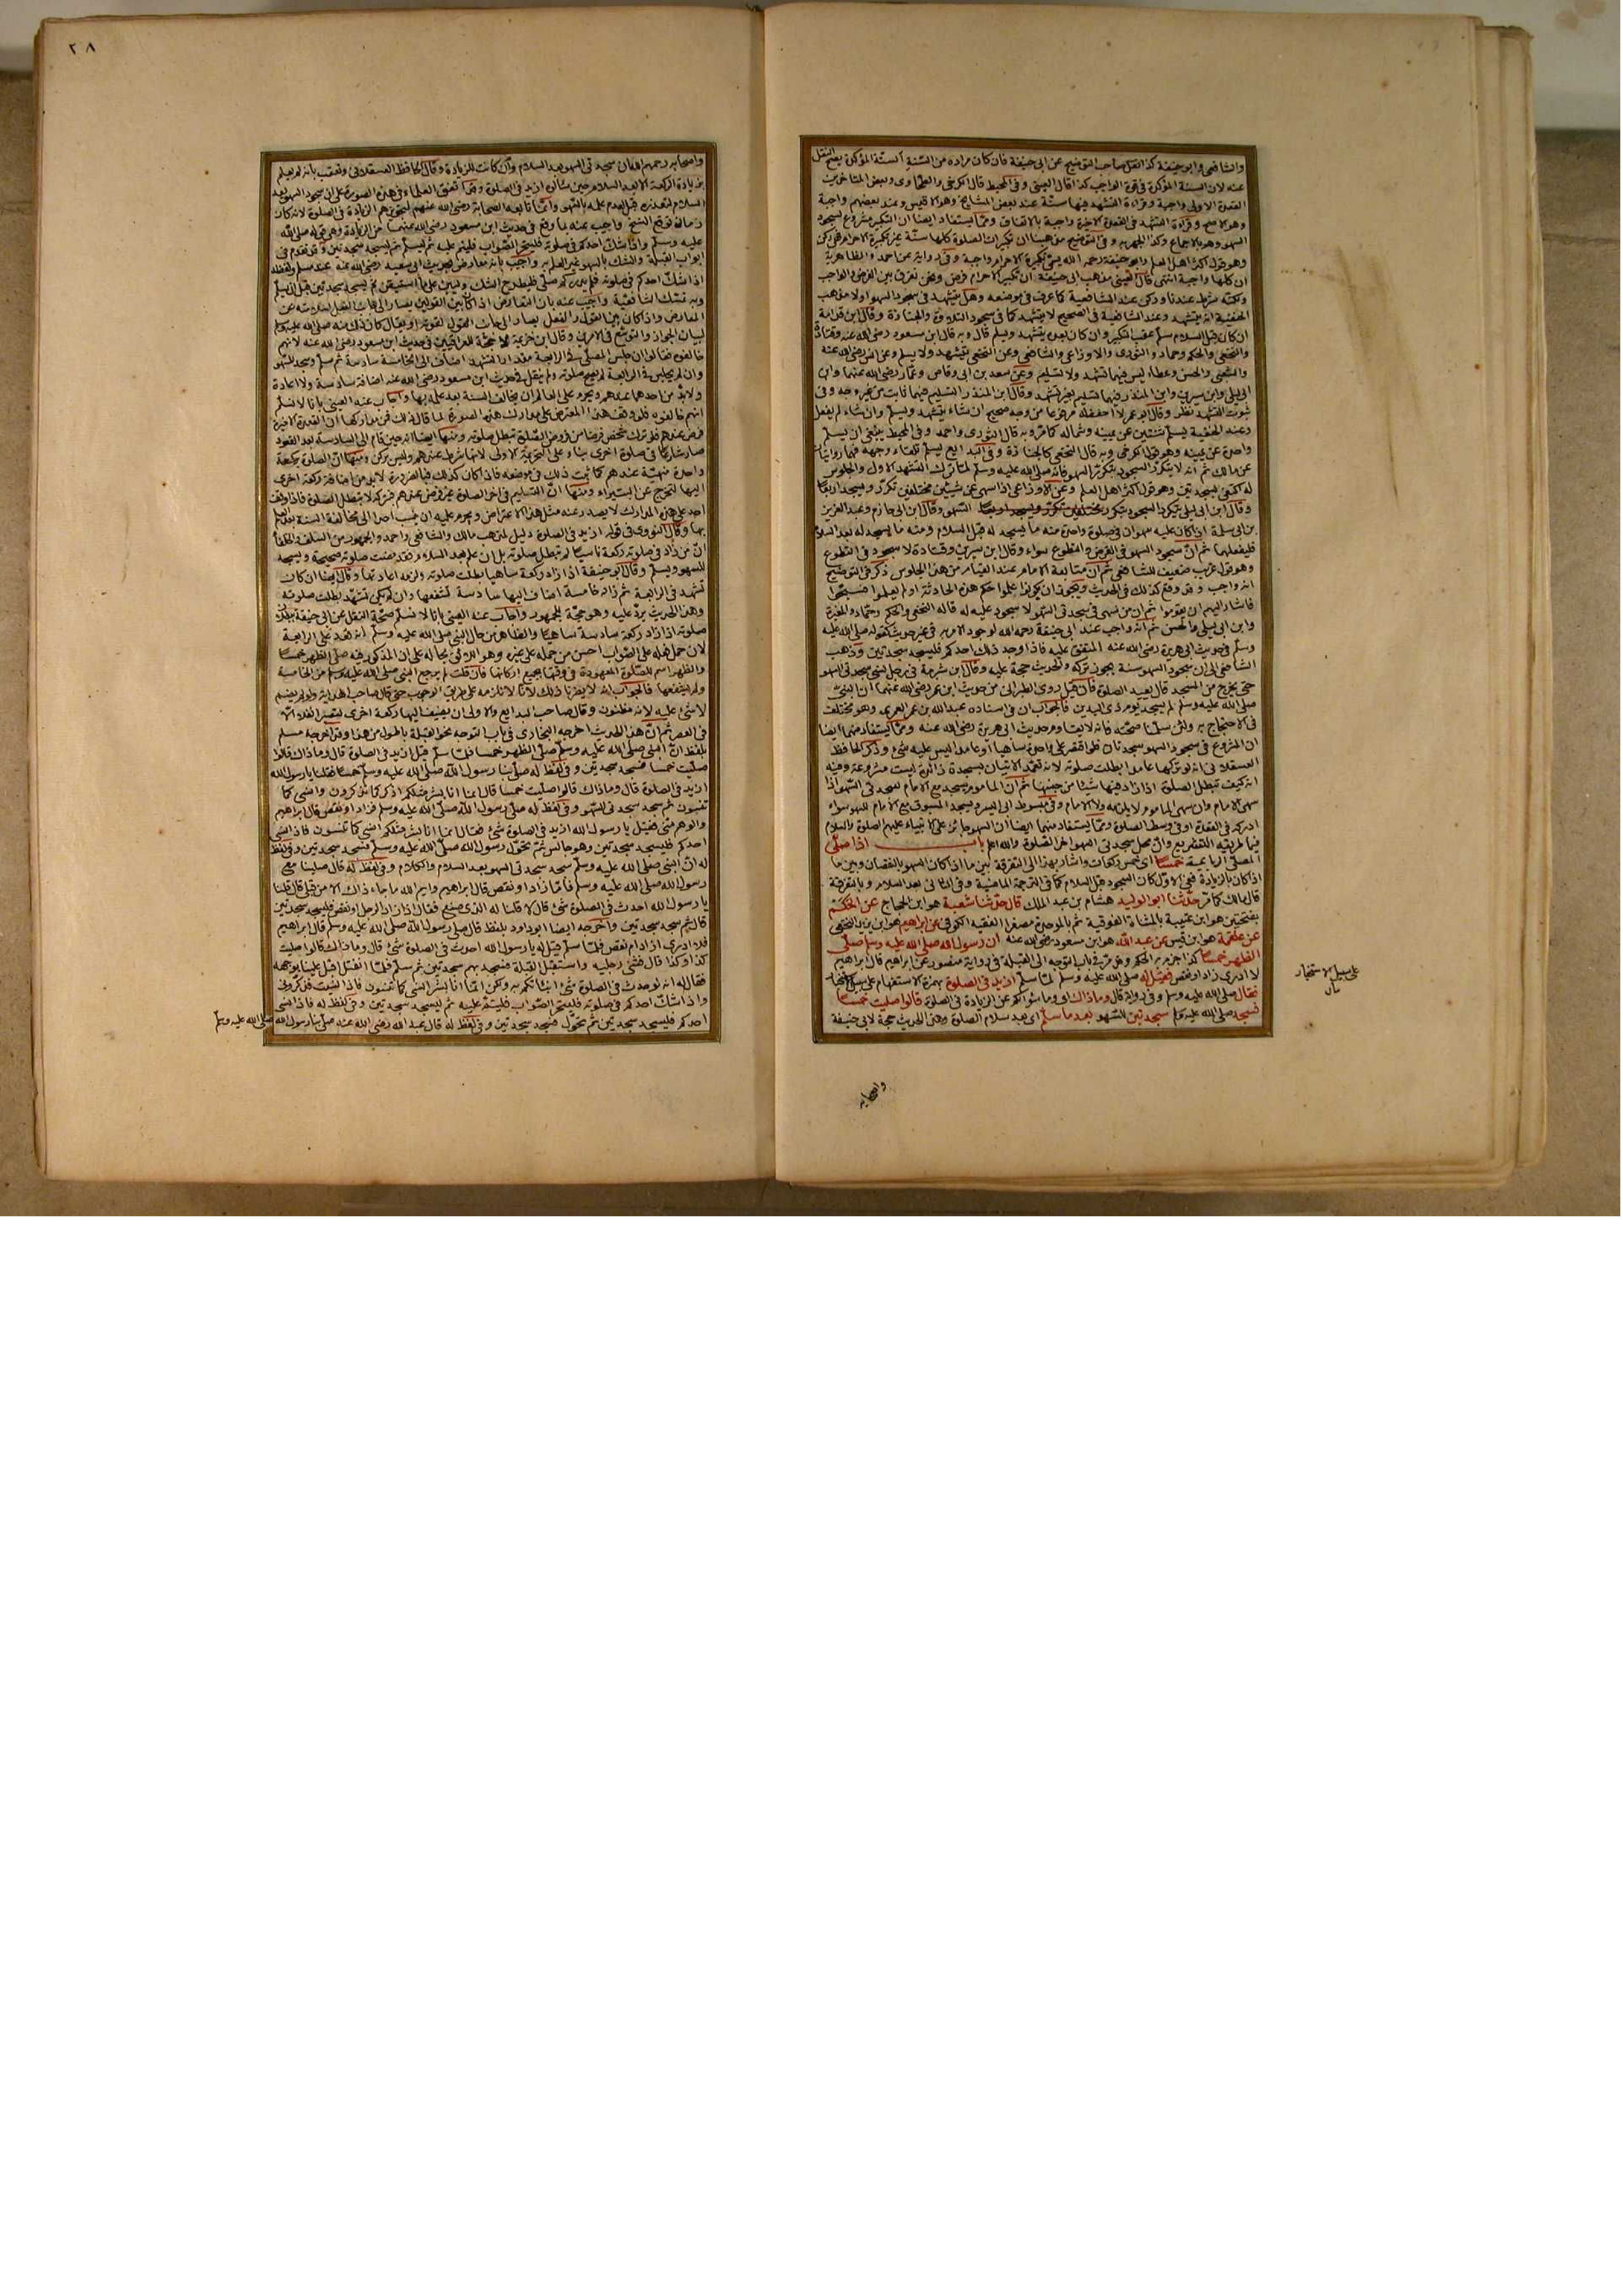 والشافعي وابو حنيفة كذا نقل صاحب التوضيح عن ابي حنيفة فان كان مراده من السنة السنة المؤكدة يصح النقل
عنه لان السنة المؤكدة في قوة الواجب كذا قال العيني وفي المحيط قال الكرخي والطحاوي وبعض المتاخرين
القعدة الاولى واجبة وقراءة التشهد فيها سنة عند بعض المشايخ وهو الاقيس وعند بعضهم واجبة
وهو الاصح وقراءة التشهد في القعدة الاخيرة واجبة بالاتفاق ومما يستفاد ايضا ان التكبير مشروع لسجود
السهو وهو بالاجماع وفي التوضيح مذهبنا ان تكبيرات الصلوة كلها سنة غير تكبيرة الاحرام فهي ركن
وهو قول اكثر اهل العلم وابو حنيفة رحمه الله يسمي تكبيرة الاحرام واجبة وفي رواية عن احمد والظاهرية
ان كلها واجبة انتهى قال العيني مذهب ابي حنيفة ان تكبير الاحرام فرض ونحن نفرق بين الفرض والواجب
ولكنه شرط عندنا وركن عند الشافعية كما عرف في موضعه وهل يتشهد في سجود السهو اولا مذهب
الحنفية انه يتشهد وعند الشافعية في الصحيح لا يتشهد كما في سجود التلاوة والجنازة وقال ابن قدامة
ان كان قبل السلام سلم عقب التكبير وان كان بعده يتشهد ويسلم قال وبه قال ابن مسعود رضي الله عنه وقتادة
والنخعي والحكم وحماد والثوري والاوزاعي والشافعي وعن النخعي يتشهد ولا يسلم وعن انس رضي الله عنه
والشعبي والحسن وعطاء ليس فيهما تشهد ولا تسليم وعن سعد بن ابي وقاص وعمار رضي الله عنهما وابن
ابي ليلى وابن سيرين وابن المنذر فيهما تسليم بغير تشهد وقال ابن المنذر التسليم فيهما ثابت من غير وجه وفي
ثبوت التشهد نظر وقال ابو عمر لا احفظه مرفوعا من وجه صحيح ان شاء يتشهد ويسلم وان شاء لم يفعل
وعند الحنفية يسلم ثنتين عن يمينه وشماله كما مر وبه قال الثوري واحمد وفي المحيط ينبغي ان يسلم
واحدة عن يمينه وهو قول الكرخي وبه قال النخعي كالجنازة وفي البدايع يسلم تلقاء وجهه
عن مالك ثم انه لا يتكرر السجود بتكرر السهو فانه صلى الله عليه وسلم لما ترك التشهد الاول والجلوس
له اكتفى بسجدتين وهو قول اكثر اهل العلم وعن الاوزاعي اذا سهى عن شيئين مختلفين تكرر ويسجد اربعا
وقال ابن ابي ليلى يتكرر السجود بتكرر السهو وقال ابن ابي حازم وعبد العزيز
بن ابي سلمة ان كان عليه سهوان في صلوة واحدة منه ما يسجد له قبل السلام ومنه ما يسجد له بعد السلام
فليفعلهما ثم ان سجود السهو في الفرض والتطوع سواء وقال ابن سيرين وقتادة لا سجود في التطوع
وهو قول غريب ضعيف للشافعي ثم ان متابعة الامام عند القيام من هذا الجلوس ذكر في التوضيح
انه واجب وقد وقع كذلك في الحديث ويجوز ان يكونوا علموا حكم هذه الحادثة او لم يعلموا فسبحوا
فاشار اليهم ان يقوموا ثم ان من سهى في سجدتي السهو لا سجود عليه له قاله النخعي والحكم وحماد والمغيرة
وابن ابي ليلى والحسن ثم انه واجب عند ابي حنيفة رحمه الله لوجود الامر به في غير حديث كقوله صلى الله عليه
وسلم في حديث ابي هريرة رضي الله عنه المتفق عليه فاذا وجد ذلك احدكم فليسجد سجدتين وذهب
الشافعي الى ان سجود السهو سنة يجوز تركه والحديث حجة عليه وقال ابن شبرمة في رجل نسي سجدتي السهو
حتى يخرج من المسجد قال يعيد الصلوة فان قيل روى الطبراني من حديث ابن عمر رضي الله عنهما ان النبي
صلى الله عليه وسلم لم يسجد يوم ذي اليدين فالجواب ان في اسناده عبد الله بن عمر العمري وهو مختلف
في الاحتجاج به ولئن سلمنا صحته فانه لا يقاوم حديث ابي هريرة رضي الله عنه ومما يستفاد منهما ايضا
ان المشروع في سجود السهو سجدتان فلو اقتصر على واحدة ساهيا او عامدا ليس عليه شيء وذكر الحافظ
العسقلاني انه لو تركها عامدا بطلت صلوته لانه تعمد الاتيان بسجدة زائدة ليست مشروعة وفيه
انه كيف تبطل الصلوة اذا زاد فيها شيئا من جنسها ثم ان الماموم يسجد مع الامام لسجدتي السهو اذا
سهى الامام وان سهى الماموم لا يلزمه ولا الامام وفي مبسوط ابي اليسر ويسجد المسبوق مع الامام للسهو سواء
ادركه في القعدة او في وسط الصلوة ومما يستفاد منهما ايضا ان السهو جائز على الانبياء عليهم الصلوة والسلام
فيما طريقه التشريع وان محل سجدتي السهو اخر الصلوة والله اعلم باب اذا صلى
المصلي الرباعية خمسا اي خمس ركعات واشار بهذا الى التفرقة بين ما اذا كان السهو بالنقصان وبين ما
اذا كان بالزيادة ففي الاول كان السجود قبل السلام كما في الترجمة الماضية وفي الثاني بعد السلام وبالتفرقة
قال مالك كما مر حدثنا ابو الوليد هشام بن عبد الملك قال حدثنا شعبة هو ابن الحجاج عن الحكم
بفتحتين هو ابن عتيبة بالمثناة الفوقية ثم بالموحدة مصغرا الفقيه الكوفي عن ابراهيم هو ابن يزيد النخعي
عن علقمة هو ابن قيس عن عبد الله هو ابن مسعود رضي الله عنه ان رسول الله صلى الله عليه وسلم صلى
الظهر خمسا كذا جزم به الحكم وقد مر في باب التوجه الى القبلة في رواية منصور عن ابراهيم قال ابراهيم
لا ادري زاد او نقص فقيل له صلى الله عليه وسلم لما سلم ازيد في الصلوة بهمزة الاستفهام على سبيل الاستخبار
فقال صلى الله عليه وسلم وفي رواية قال وما ذاك اي وما سؤالكم عن الزيادة في الصلوة قالوا صليت خمسا
فسجد صلى الله عليه وسلم سجدتين للسهو بعد ما سلم اي بعد سلام الصلوة وهذا الحديث حجة لابي حنيفة
على سبيل الاستخبار
واصحابه
٢٨
واصحابه رحمهم الله ان سجدتي السهو بعد السلام وان كانت للزيادة وقال الحافظ العسقلاني وتعقب بانه لم يعلم
بزيادة الركعة الا بعد السلام حين سألوه ازيد في الصلوة وقد اتفق العلماء في هذه الصورة على ان سجود السهو بعد
السلام لتعذره قبله لعدم علمه بالسهو وانما تابعه الصحابة رضي الله عنهم لتجويزهم الزيادة في الصلوة لانه كان
زمان توقع النسخ واجيب عنه بما وقع في حديث ابن مسعود رضي الله عنهما من الزيادة وهي قوله صلى الله
عليه وسلم واذا شك احدكم في صلوته فليتحر الصواب فليتم عليه ثم ليسلم ثم ليسجد سجدتين وقد تقدم في
ابواب القبلة والشك بالسهو غير العلم به واجيب بانه معارض بحديث ابي سعيد رضي الله عنه عند مسلم ولفظه
اذا شك احدكم في صلوته فلم يدر كم صلى فليطرح الشك وليبن على ما استيقن ثم يسجد سجدتين قبل ان يسلم
وبه تمسك الشافعية واجيب عنه بان التعارض اذا كان بين القولين يصار الى جانب الفعل لسلامته عن
المعارض واذا كان بين القول والفعل يصار الى جانب القول لقوته او يقال كان ذلك منه صلى الله عليه وسلم
لبيان الجواز والتوسع في الامرين وقال ابن خزيمة لا حجة للعراقيين في حديث ابن مسعود رضي الله عنه لانهم
خالفوه فقالوا ان جلس المصلي في الرابعة مقدار التشهد اضاف الى الخامسة سادسة ثم سلم وسجد للسهو
وان لم يجلس في الرابعة لم تصح صلوته ولم ينقل في حديث ابن مسعود رضي الله عنه اضافة سادسة ولا اعادة
ولا بد من احدهما عندهم ويحرم على العالم ان يخالف السنة بعد علمه بها واجاب عنه العيني بانا لا نسلم
انهم خالفوه فلو وقف هذا المعترض على مدارك هذه الصورة لما قال ذلك فمن مداركها ان القعدة الاخيرة
فرض عندهم فلو ترك شخص فرضا من فروض الصلوة تبطل صلوته ومنها ايضا انه حين قام الى السادسة بعد القعود
صار شارعا في صلوة اخرى بناء على التحريمة الاولى لانها شرط عندهم وليس بركن ومنها ان الصلوة بركعة
واحدة منهية عندهم كما ثبت ذلك في موضعه فاذا كان كذلك فبالضرورة لا بد من اضافة ركعة اخرى
اليها لتخرج عن البتيراء ومنها ان التسليم في اخر الصلوة غير فرض عندهم فتركه لا يبطل الصلوة فاذا وقف
احد على هذه المدارك لا يصدر عنه مثل هذا الاعتراض ويحرم عليه ان ينسب احدا الى مخالفة السنة بعد العلم
بها وقال النووي في قوله ازيد في الصلوة دليل لمذهب مالك والشافعي واحمد والجمهور من السلف والخلف
ان من زاد في صلوته ركعة ناسيا لم تبطل صلوته بل ان علم بعد السلام فقد مضت صلوته صحيحة ويسجد
للسهو ويسلم وقال ابو حنيفة اذا زاد ركعة ساهيا بطلت صلوته ولزمه اعادتها وقال ايضا ان كان
تشهد في الرابعة ثم زاد خامسة اضاف اليها سادسة تشفعها وان لم يكن تشهد بطلت صلوته
وهذا الحديث يرد عليه وهو حجة للجمهور واجاب عنه العيني بانا لا نسلم صحة النقل عن ابي حنيفة ببطلان
صلوته اذا زاد ركعة سادسة ساهيا والظاهر من حال النبي صلى الله عليه وسلم انه قعد على الرابعة
لان حمل فعله على الصواب احسن من حمله على غيره وهو اللائق بحاله على ان المذكور فيه صلى الظهر خمسا
والظهر اسم للصلوة المعهودة في وقتها بجميع اركانها فان قلت لم يرجع النبي صلى الله عليه وسلم من الخامسة
ولم يشفعها فالجواب انه لا يضرنا ذلك لانا لا نلزمه على طريق الوجوب حتى قال صاحب الهداية ولو لم يضم
لا شيء عليه لانه مظنون وقال صاحب البدايع والاولى ان يضيف اليها ركعة اخرى ليصير نفلا الا
في العصر ثم ان هذا الحديث اخرجه البخاري في باب التوجه نحو القبلة باطول من هذا وقد اخرجه مسلم
بلفظ ان النبي صلى الله عليه وسلم صلى الظهر خمسا فلما سلم قيل ازيد في الصلوة قال وما ذاك قالوا
صليت خمسا فسجد سجدتين وفي لفظ له صلى بنا رسول الله صلى الله عليه وسلم خمسا فقلنا يا رسول الله
ازيد في الصلوة قال وما ذاك قالوا صليت خمسا قال انما انا بشر مثلكم اذكر كما تذكرون وانسى كما
تنسون ثم سجد سجدتي السهو وفي لفظ له صلى رسول الله صلى الله عليه وسلم فزاد او نقص قال ابراهيم
والوهم مني فقيل يا رسول الله ازيد في الصلوة شيء فقال انما انا بشر مثلكم انسى كما تنسون فاذا نسي
احدكم فليسجد سجدتين وهو جالس ثم تحول رسول الله صلى الله عليه وسلم فسجد سجدتين وفي لفظ
له ان النبي صلى الله عليه وسلم سجد سجدتي السهو بعد السلام والكلام وفي لفظ له قال صلينا مع
رسول الله صلى الله عليه وسلم فاما زاد او نقص قال ابراهيم وايم الله ما جاء ذاك الا من قبلي قال قلنا
يا رسول الله احدث في الصلوة شيء قال لا قلنا له الذي صنع فقال اذا زاد الرجل او نقص فليسجد سجدتين
قال ثم سجد سجدتين واخرجه ايضا ابو داود بلفظ قال صلى رسول الله صلى الله عليه وسلم قال ابراهيم
فلا ادري ازاد ام نقص فلما سلم قيل له يا رسول الله احدث في الصلوة شيء قال وما ذاك قالوا صليت
كذا وكذا قال فثنى رجليه واستقبل القبلة فسجد بهم سجدتين ثم سلم فلما انفتل اقبل علينا بوجهه
فقال له انه لو حدث في الصلوة شيء انبأتكم به ولكن انما انا بشر انسى كما تنسون فاذا نسيت فذكروني
واذا شك احدكم في صلوته فليتحر الصواب فليتم عليه ثم ليسجد سجدتين وفي لفظ له فاذا نسي
احدكم فليسجد سجدتين ثم تحول فسجد سجدتين وفي لفظ له قال عبد الله رضي الله عنه صلى بنا رسول الله صلى الله عليه وسلم